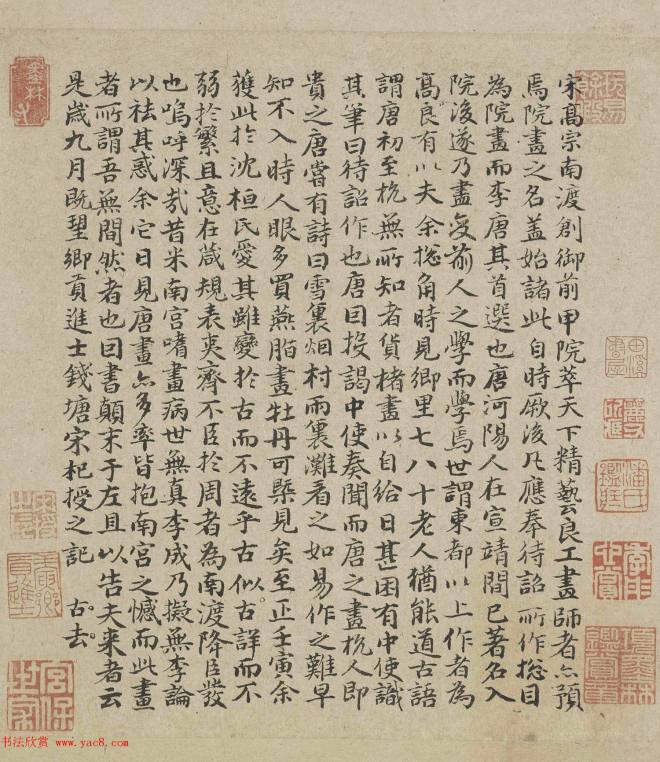 宋高宗南渡創御前甲院萃天下精藝良工畫師者亦預
焉院畫之名蓋始諸此自時厥後凡應奉待詔所作揔目
為院畫而李唐其首選也唐河陽人在宣靖間已著名入
院後遂乃盡變前人之學而學焉世謂東都以上作者為
高良有以夫余揔角時見鄉里七八十老人猶能道古語
謂唐初至杭無所知者貨楮畫以自給日甚困有中使識
其筆曰待詔作也唐因投謁中使奏聞而唐之畫杭人即
貴之唐嘗有詩曰雪裏烟村雨裏灘看之如易作之難早
知不入時人眼多買燕脂畫牡丹可槩見矣至正壬寅余
獲此於沈桓氏愛其雖變於古而不遠乎古似古詳而不
弱於繁且意在箴規表夷齊不臣於周者為南渡降臣發
也嗚呼深哉昔米南宮嗜畫病世無真李成乃擬無李論
以祛其惑余它日見唐畫亦多率皆抱南宮之憾而此畫
者所謂吾無間然者也因書顛末于左且以告夫來者云
是歲九月既望鄉貢進士錢塘宋杞授之記 古。去。
宮保世家
书法欣赏 www.yac8.com